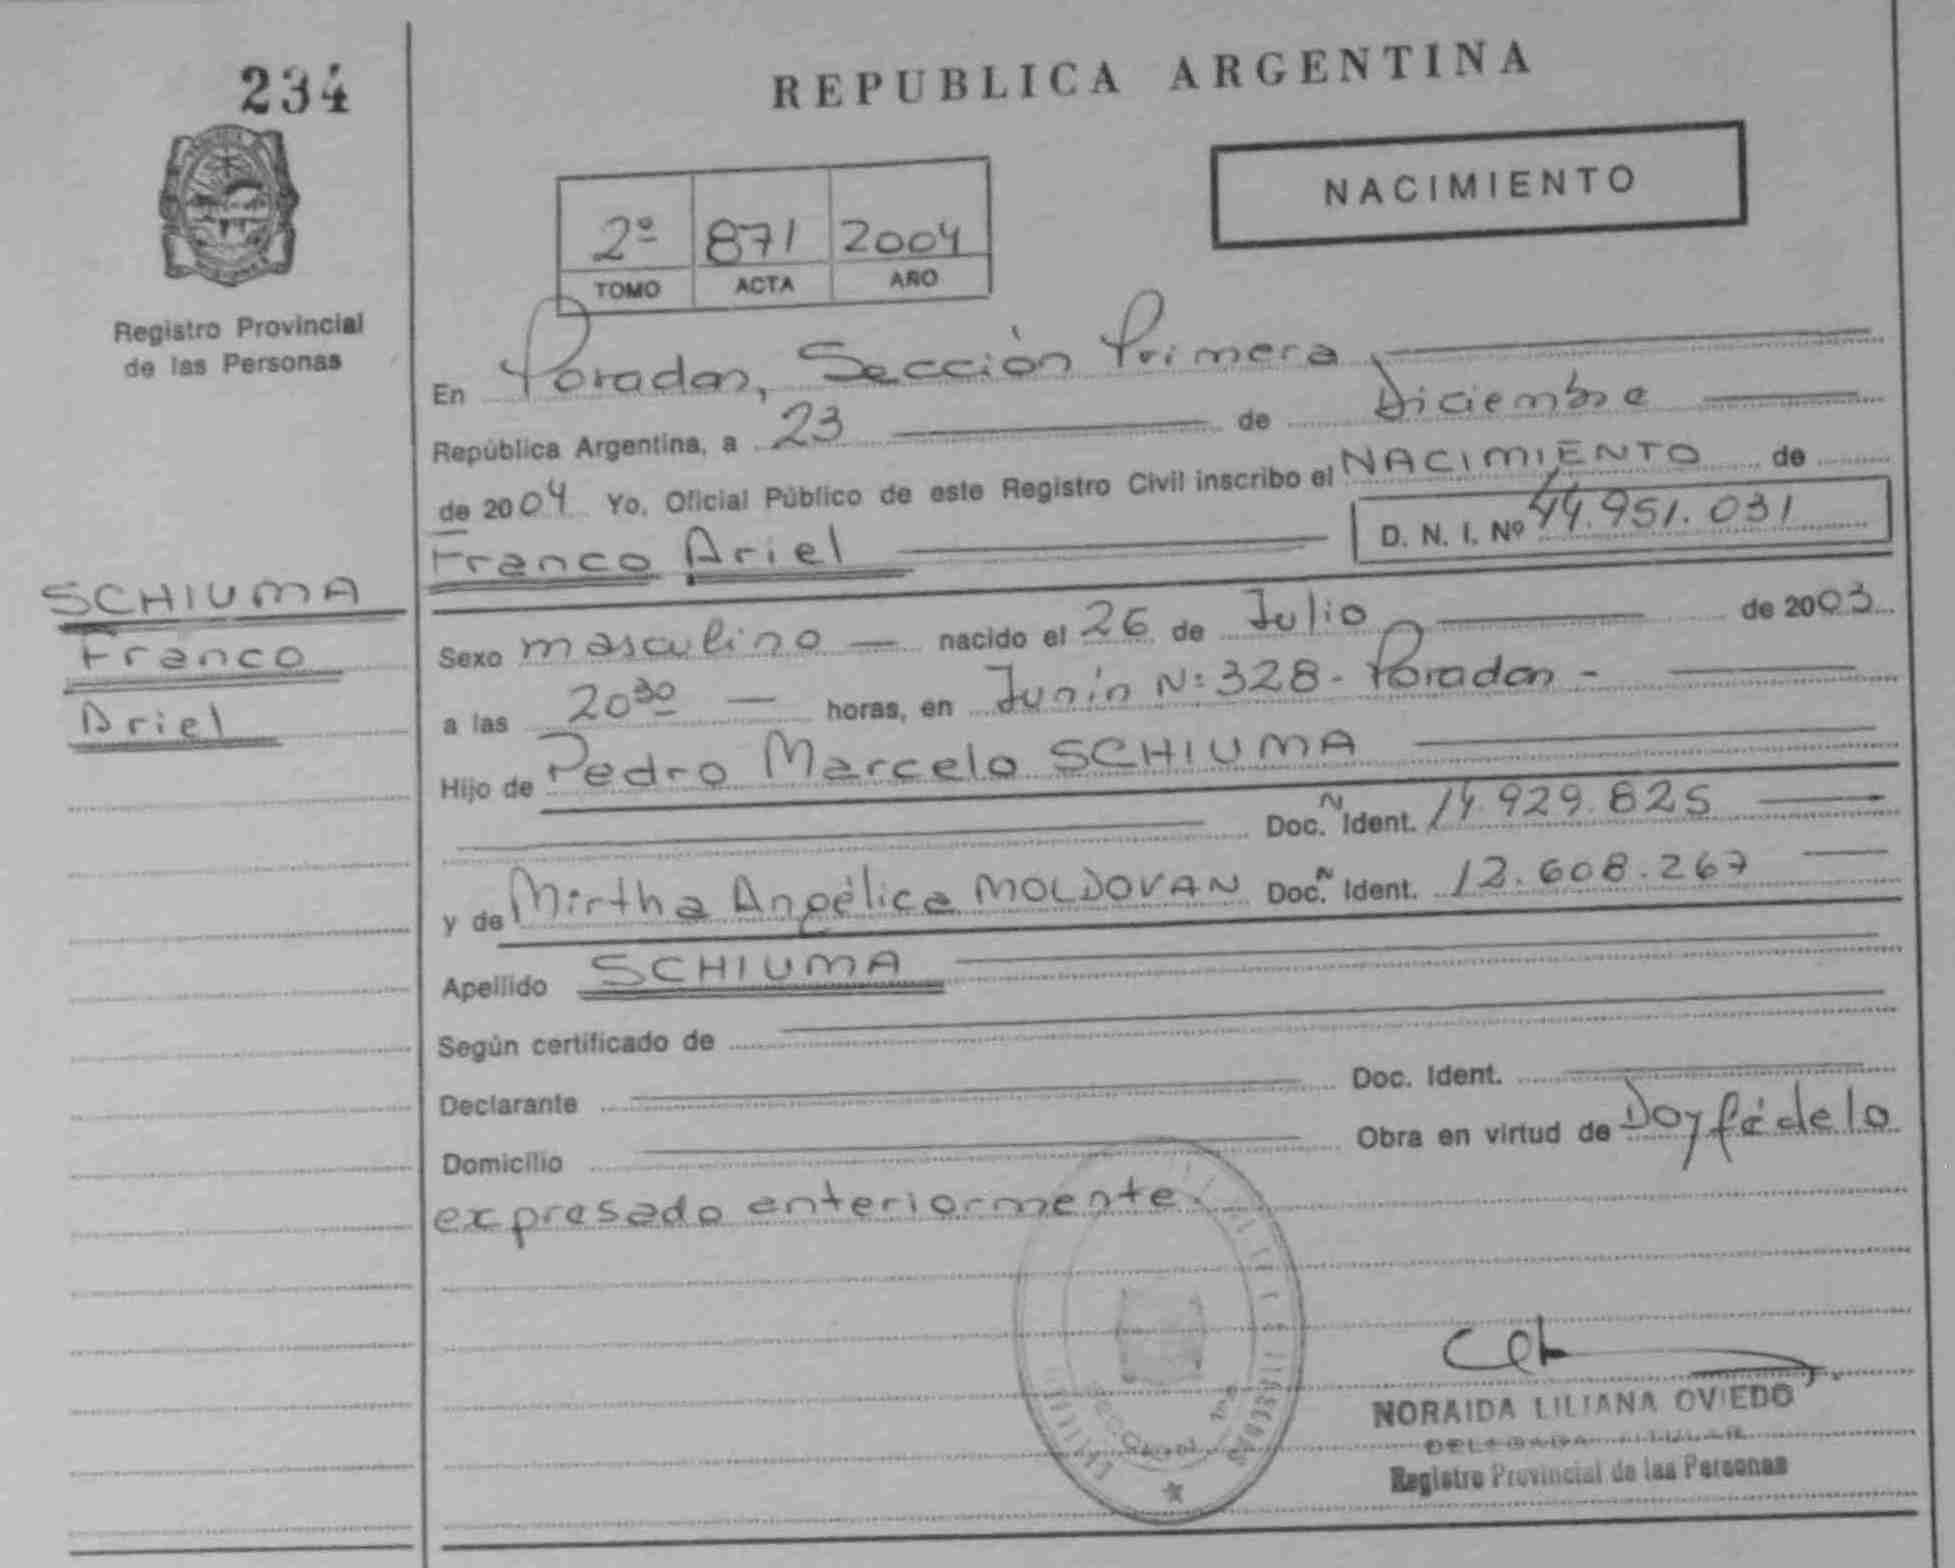 234
REPUBLICA ARGENTINA
NACIMIENTO
2º 871 2004
TOMO ACTA AÑO
Registro Provincial
de las Personas
En Posadas, Sección Primera
República Argentina, a 23 de Diciembre
de 2004 Yo, Oficial Público de este Registro Civil inscribo el NACIMIENTO de
Franco Ariel D. N. I. Nº 44.951.031
SCHIUMA
Franco
Ariel
Sexo masculino nacido el 26 de Julio de 2003
a las 20³⁰ horas, en Junín N: 328 - Posadas -
Hijo de Pedro Marcelo SCHIUMA
Doc. N Ident. 14.929.825
y de Mirtha Angélica MOLDOVAN Doc. N Ident. 12.608.267
Apellido SCHIUMA
Según certificado de
Declarante Doc. Ident.
Domicilio Obra en virtud de Doy fé de lo
expresado anteriormente.
NORAIDA LILIANA OVIEDO
DELEGADA TITULAR
Registro Provincial de las Personas